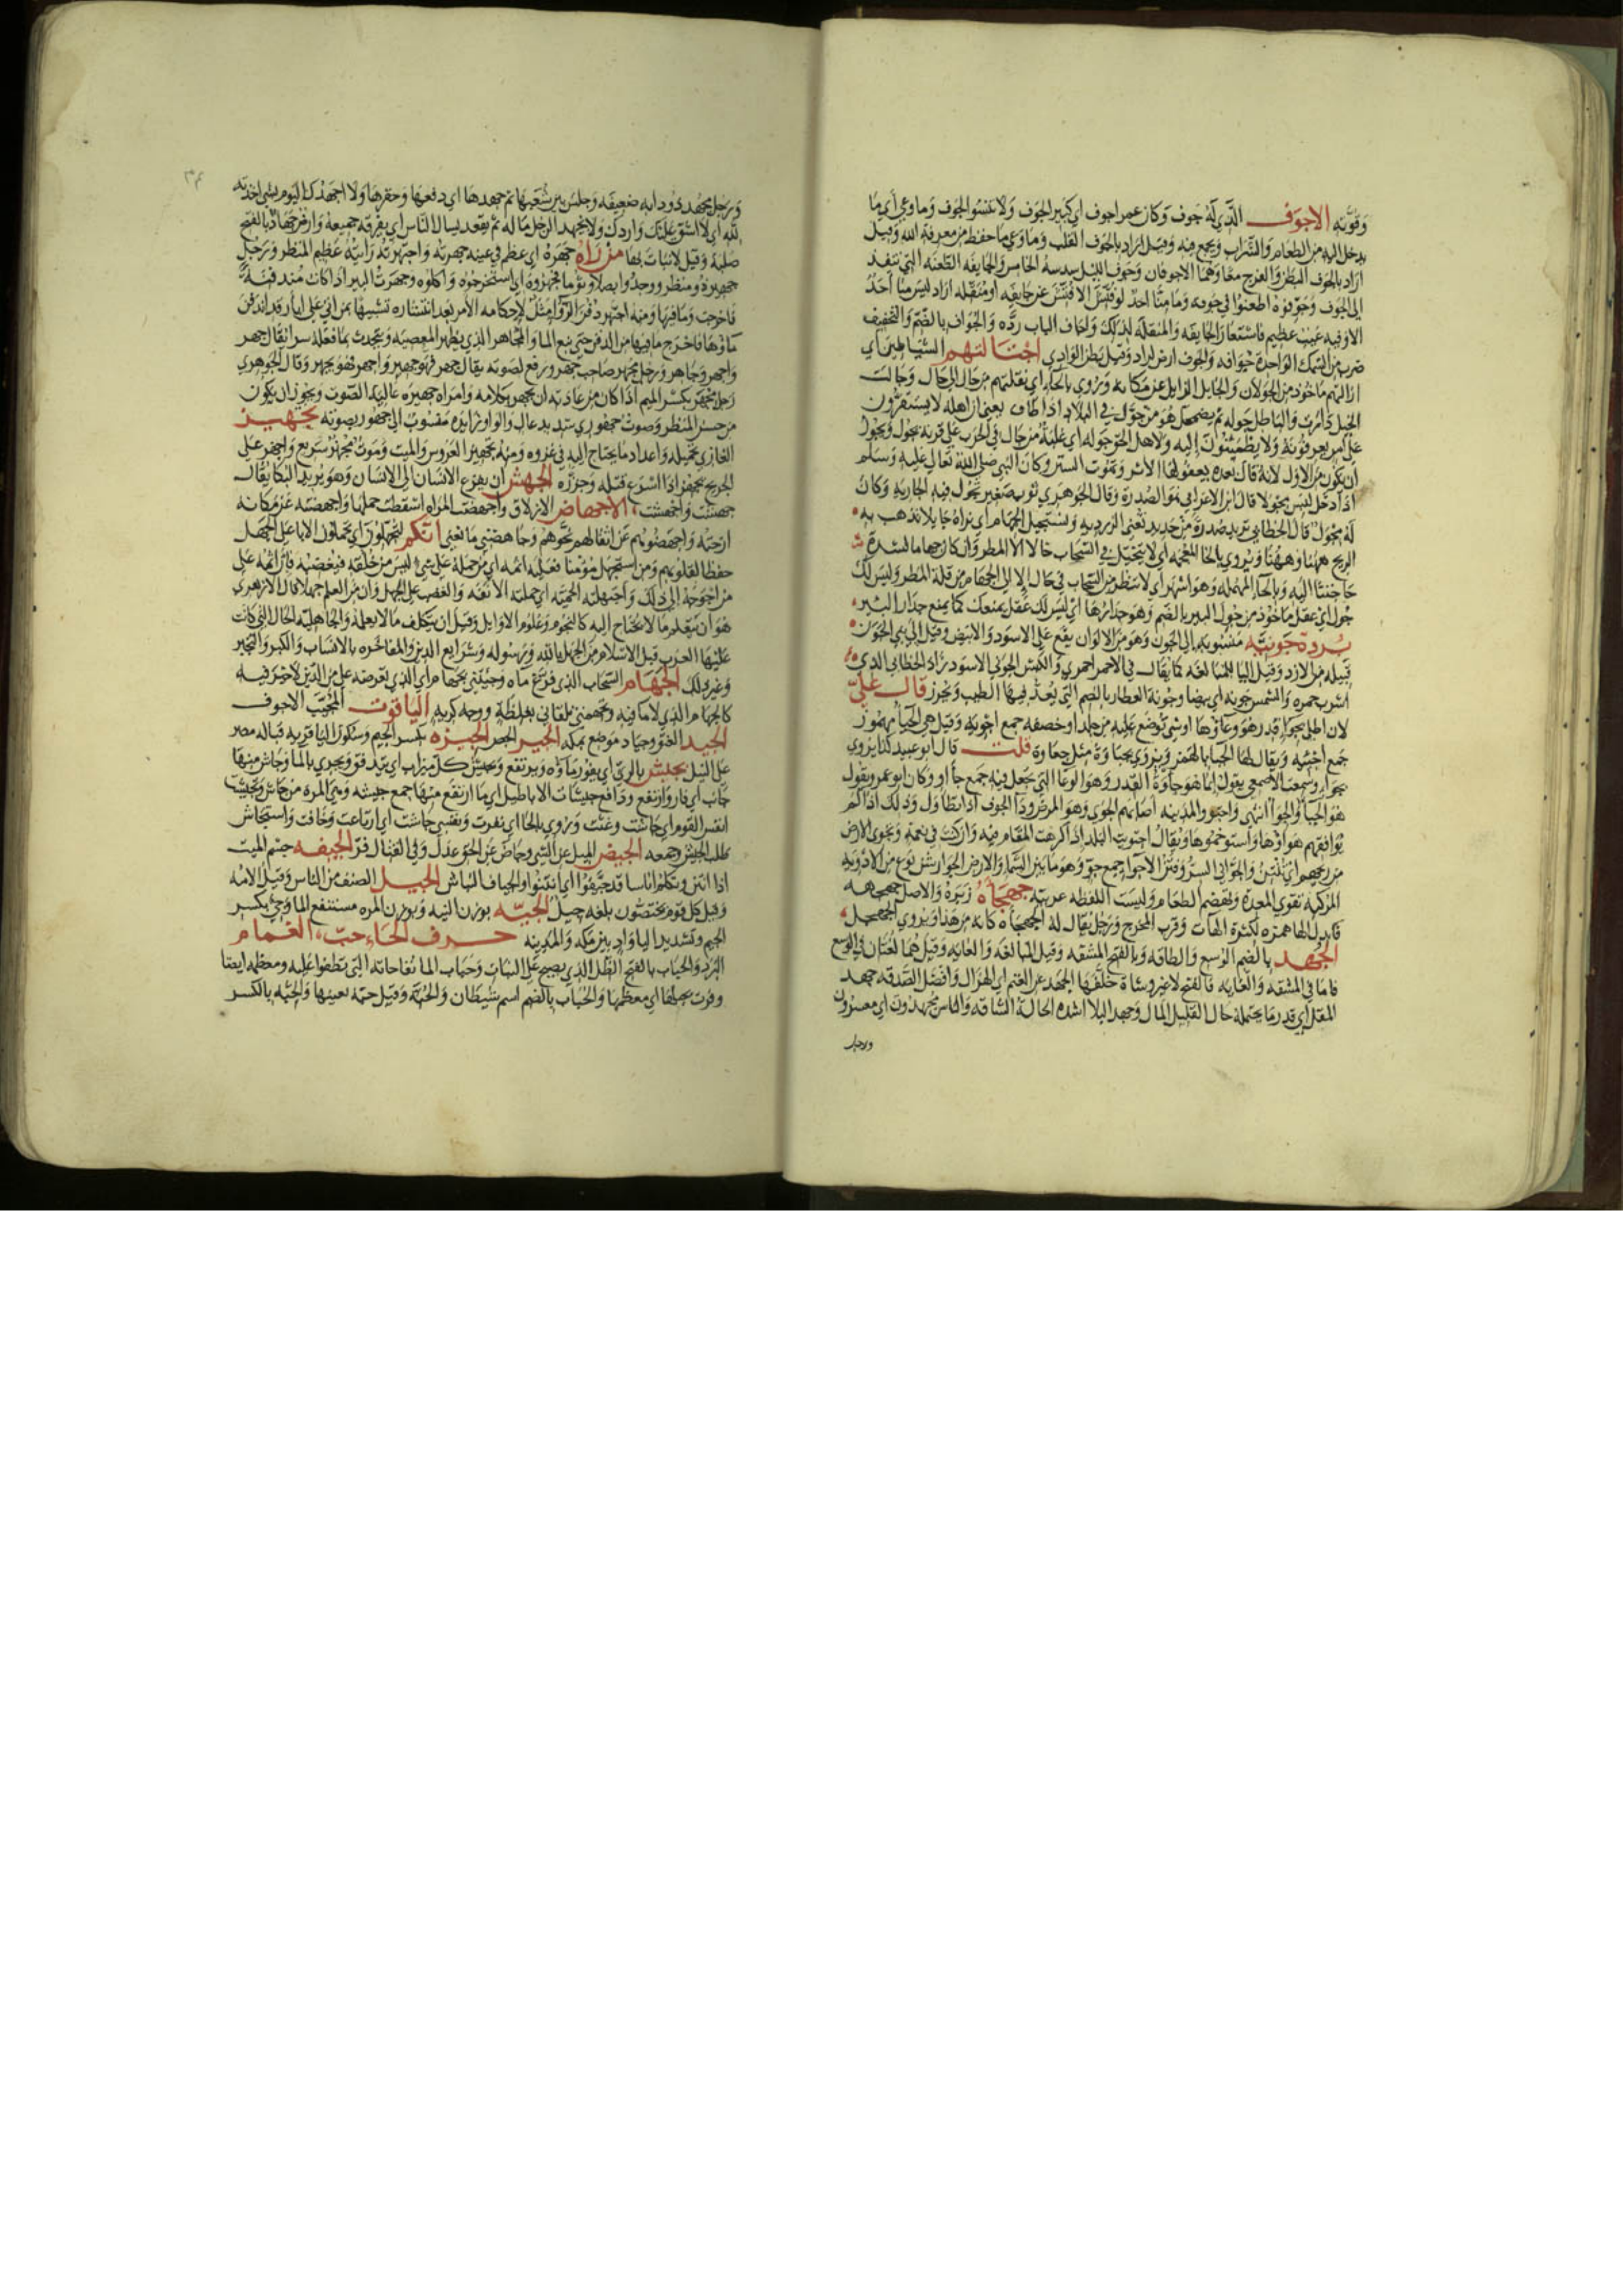 وقوته الاجوف الذي له جوف وكان عمر اجوف اي كبير الجوف ولا تنسوا الجوف وما وعي أي ما
يدخل اليه من الطعام والشراب ويجمع فيه وقيل اراد بالجوف القلب وما وعي ما حفظ من معرفة الله وقيل
اراد بالجوف البطن والفرج معا وهما الاجوفان وجوف الليل سدسه الخامس والجايفه الطعنه التي تنفذ
الى الجوف وجوفوه اطعنوا في جوفه وما منا احد لو فتش الا فتش عن جايفه او منقله اراد ليس منا أحد
الا وفيه عيب عظيم فاستعار الجايفه والمنقله لذلك واجاف الباب رده والجواف بالضم والتخفيف
ضرب من السمك الواحدة جوافه والجوف ارض لمراد وقيل بطن الوادي اجتالتهم الشياطين أي
ازالتهم ماخوذ من الجولان والجايل الزايل عن مكانه وروي بالحاء اي نقلتهم من حال الى حال وجالت
الخيل دارت والباطل جوله ثم يضمحل هو من جول في البلاد اذا طاف يعني ان اهله لا يستقرون
على امر يعرفونه ولا يطمئنون اليه ولاهل الحق جوله اي غلبة من جال في الحرب على قرنه يجول ويجوز
أن يكون من الاول لانه قال بعده يعفو لها الاثر وتموت السنن وكان النبي صلى الله تعالى عليه وسلم
اذا دخل لبس مجولا قال ابن الاعرابي هو الصدرة وقال الجوهري ثوب صغير تجول فيه الجارية وكان
له مجول قال الخطابي تريد صدرة من حديد تعني الزرديه ونستجيل الجهام اي نراه جايلا تذهب به
الريح ههنا وههنا ويروي بالخا المعجمه اي لا نتخيل في السحاب خالا الا المطر وان كان جهاما لشدة
حاجتنا اليه وبالحاء المهمله وهو اشهر أي لا ننظر من السحاب في حال الا الى الجهام من قلة المطر وليس لك
جول اي عقل ماخوذ من جول البير بالضم وهو جدارها اي ليس لك عقل يمنعك كما يمنع جدار البير
بردة جونيه منسوبه الى الجون وهو من الالوان يقع على الاسود والابيض وقيل الى بني الجون
قبيله من الازد وقيل اليا للمبالغه كما يقال في الاحمر احمري والكبش الجوني الاسود زاد الخطابي الذي
اشرب حمره والشمس جونه أي بيضا وجونة العطار بالضم التي يعد فيها الطيب ويحرز قال علي
لان اطلي بجواء قدر هو وعاوها او شي توضع عليه من جلد او خصفه جمع اجويه وقيل هي الجياء مهموز
جمع اجئيه ويقال لها الجيا بلا همز ويروي بجياوة مثل جعاوة قلت قال ابو عبيد كذا يروي
بجواء وسمعت الاصمعي يقول انما هو جاوة القدر وهو الوعا التي تجعل فيه جمع جاء او وكان ابو عمر يقول
هو الجياء والجواء انتهى واجتووا المدينه اصابهم الجوي وهو المرض وداء الجوف اذا تطاول وذلك اذا لم
يوافقهم هواؤها واستوخموها ويقال اجتويت البلد اذا كرهت المقام فيه وان كنت في نعمة وتجوى الارض
من ريحهم اي تنتن والجواني السر وفتق الاجواء جمع جو وهو ما بين السما والارض الجوارش نوع من الادويه
المركبه تقوي المعدة وتهضم الطعام وليست اللفظه عربيه جهجأه زبره والاصل جهجهه
فابدل الها همزه لكثرة الهآت وقرب المخرج ورجل يقال له الجهجاه كانه من هذا ويروي الجهجل
الجهد بالضم الوسع والطاقه وبالفتح المشقه وقيل المبالغه والغايه وقيل هما لغتان في الوسع
فاما في المشقه والغايه فالفتح لا غير وشاة خلفها الجهد عن الغنم اي الهزال وافضل الصدقه جهد
المقل أي قدر ما يحتمله حال القليل المال وجهد البلا اشده الحالة الشاقه والناس مجهدون اي معسرون
ورجل
ورجل مجهد ذو دابه ضعيفه وجلس بين شعبها ثم جهدها اي دفعها وحفزها ولا اجهدك اليوم بشي اخذته
لله اي لا اشق عليك واردك ولا يجهد الرجل ماله ثم يقعد يسال الناس اي يفرقه جميعه وارض جهاد بالفتح
صلبة وقيل لا نبات بها من رآه جهره اي عظم في عينه جهرته واجتهرته رأيته عظيم المنظر ورجل
جهير ذو منظر ووجدوا بصلا وثوما فجهروه اي استخرجوه واكلوه وجهرت البير اذا كانت مندفنة
فاخرجت ما فيها ومنه اجتهر دفن الرواء مثل لاحكامه الامر بعد انتشاره تشبيها بمن اتي على ابار قد اندفن
ماؤها فاخرج ما فيها من الدفن حتى نبع الما والمجاهر الذي يظهر المعصيه ويتحدث بما فعله سرا يقال جهر
واجهر وجاهر ورجل مجهر صاحب جهر ورفع لصوته يقال جهر فهو جهير واجهر فهو مجهر وقال الجوهري
رجل مجهر بكسر الميم اذا كان من عادته ان يجهر بكلامه وامراة جهيره عالية الصوت ويجوز ان يكون
من حسن المنظر وصوت جهوري شديد عال والواو زايده منسوب الى جهور بصوته تجهيز
الغازي تحميله واعداد ما يحتاج اليه في غزوه ومنه تجهيز العروس والميت وموت مجهز سريع واجهز على
الجريح يجهز اذا اسرع قتله وحرره الجهش ان يفزع الانسان الى الانسان وهو يريد البكا يقال
جهشت واجهشت الاجهاض الازلاق واجهضت المراه اسقطت حملها واجهضته عن مكانه
ازحته واجهضوهم عن اثقالهم نحوهم وجاهضني مانعني انكم لتجهلون اي تحملون الابا على الجهل
حفظا لقلوبهم ومن استجهل مؤمنا فعليه اثمه اي من حمله على شي ليس من خلقه فيغضبه فان اثمه على
من احوجه الى ذلك واجتهلته الحميه اي حملته الانفه والغضب على الجهل وان من العلم جهلا قال الازهري
هو ان يتعلم ما لا يحتاج اليه كالنجوم وعلوم الاوايل وقيل ان يتكلف ما لا يعلمه والجاهليه الحال التي كانت
عليها العرب قبل الاسلام من الجهل بالله ورسوله وشرايع الدين والمفاخره بالانساب والكبر والتجبر
وغير ذلك الجهام السحاب الذي فرغ ماه وجئتني بجهام أي الذي تعرضه علي من الدين لا خير فيه
كالجهام الذي لا ما فيه وتجهمني تلقاني بغلظة ووجه كريه الياقوت المجيب الاجوف
الجيد العنق وجياد موضع بمكه الجير الجص الجيزه بكسر الجيم وسكون اليا قريه قباله مصر
على النيل يجيش بالري اي يفور ماؤه ويرتفع وتجيش كل ميزاب اي يتدفق ويجري بالما وجاش منها
جانب أي فار وارتفع ودافع جيشات الاباطيل اي ما ارتفع منها جمع جيشه وهي المره من جاش وتجيشت
انفس القوم اي جاشت وغثت وروي بالحا اي نفرت ونفسي جاشت اي ارتاعت وخافت واستجاش
طلب الجيش وجمعه الجيض الميل عن الشي وجاض عن الحق عدل وفي القتال فر الجيفه جسم الميت
اذا انتن وتكلم اناسا قد جيفوا اي انتنوا والجياف النباش الجيل الصنف من الناس وقيل الامه
وقيل كل قوم يختصون بلغه جيل الجيّه بوزن النيه وبوزن المره مستنقع الما وجي بكسر
الجيم وتشديد اليا واد بين مكه والمدينه حرف الحاء حب الغمام
البرد والحباب بالفتح الطل الذي يصبح على النبات وحباب الما نفاخاته التي تطفوا عليه ومعظمه ايضا
وفزت بحبابها اي معظمها والحباب بالضم اسم شيطان والحية وقيل حية بعينها والحبه بالكسر